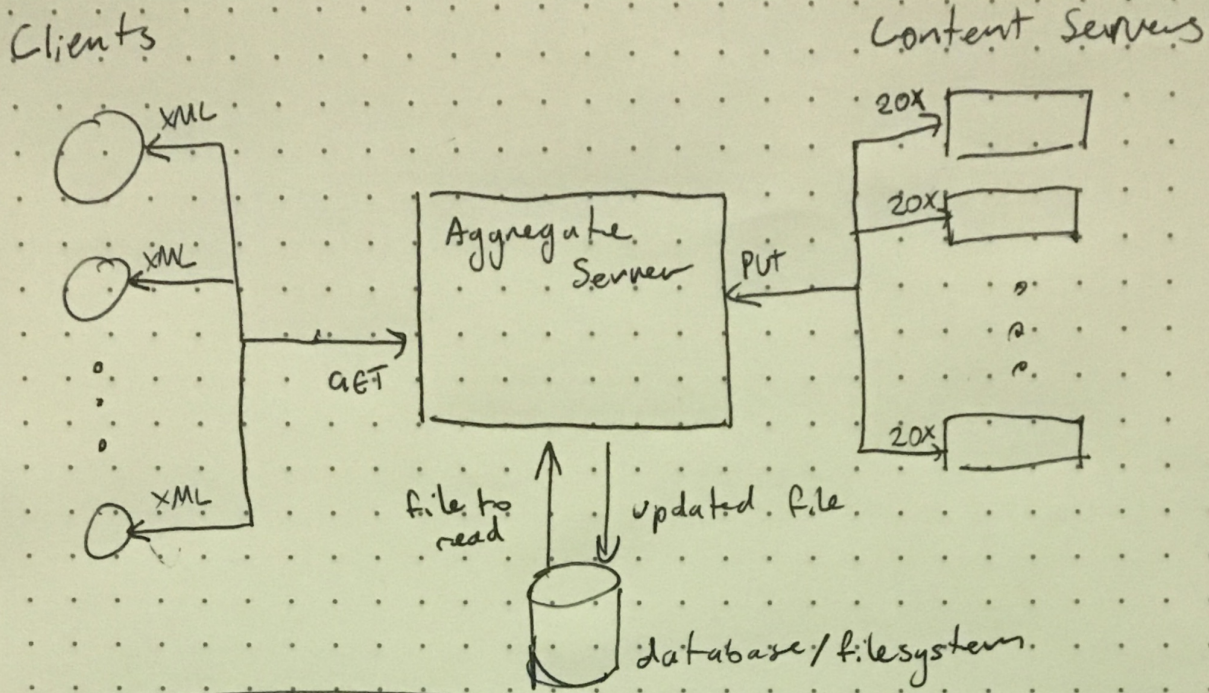 Clients
Content Servers
XML
20X
20X
Aggregate
Server
XML
PUT
GET
20X
XML
file to
read
updated file
database/filesystem